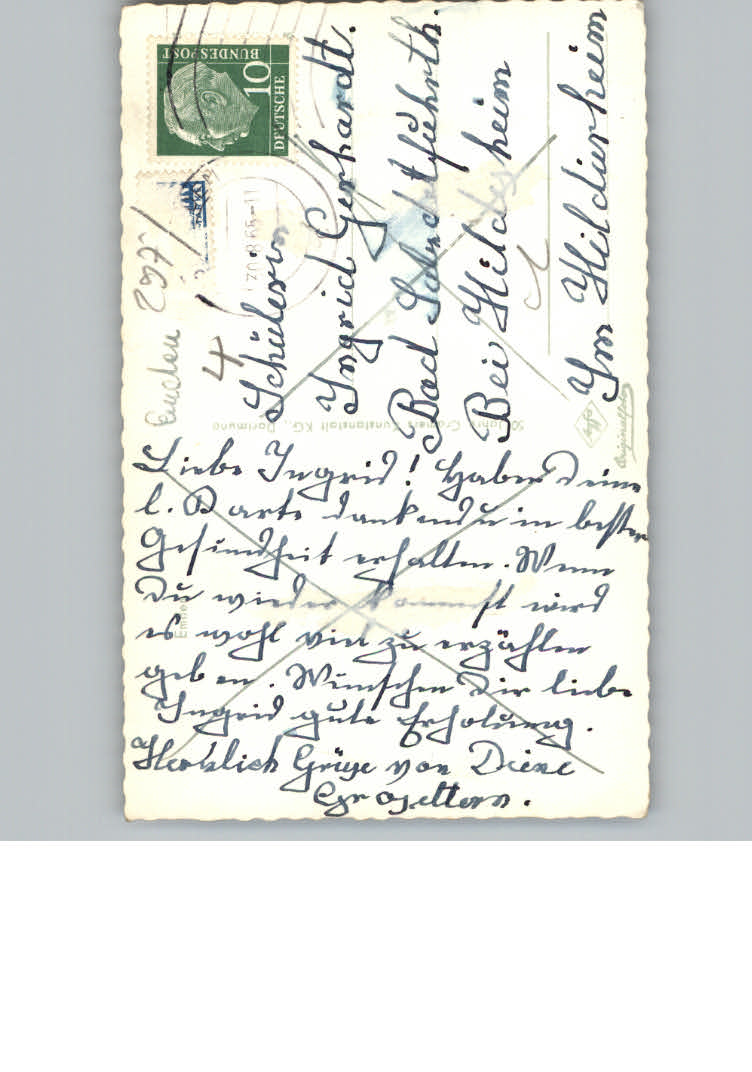 Liebe Ingrid! Haben deine
l. Karte dankend u in bester
Gesundheit erhalten. Wenn
du wieder kommst wird
es wohl viel zu erzählen
geben. Wünschen Dir liebe
Ingrid gute Erholung.
Herzlich Grüße von Deine
Großeltern.
Schülerin
Ingrid Gerhardt.
Bad Salzdetfuhrth.
Bei Hildesheim
Im Hildesheim
DEUTSCHE
BUNDESPOST
10
4
Emden 297/
50 Jahre Cramers Kunstanstalt KG., Dortmund
Originalfoto